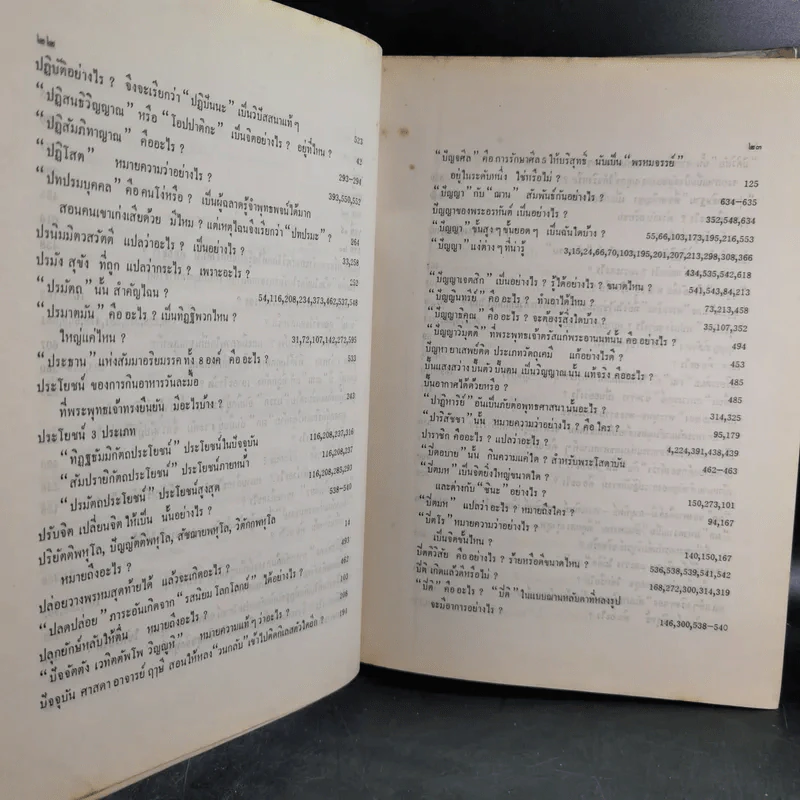 ๒๒
ปฏิบัติอย่างไร ? จึงจะเรียกว่า “ปฏิปันนะ” เป็นวิปัสสนาแท้ ๆ 523
“ปฏิสนธิวิญญาณ” หรือ “โอปปาติกะ” เป็นจิตอย่างไร ? อยู่ที่ไหน ? 42
“ปฏิสัมภิทาญาณ” คืออะไร ? 293–294
“ปฏิโสต” หมายความว่าอย่างไร ? 393,550,552
“ปทปรมบุคคล” คือ คนโง่หรือ ? เป็นผู้ฉลาดรู้จำพุทธพจน์ได้มาก
สอนคนเขาเก่งเสียด้วย มีไหม ? แต่เหตุไฉนจึงเรียกว่า “ปทปรมะ” ? 364
ปรนิมมิตวสวัตตี แปลว่าอะไร ? เป็นอย่างไร ? 33,258
ปรมัง สุขัง ที่ถูก แปลว่ากระไร ? เพราะอะไร ? 252
“ปรมัตถ” นั้น สำคัญไฉน ? 54,116,208,234,373,462,537,548
“ปรมาตมัน” คือ อะไร ? เป็นทิฏฐิพวกไหน ?
ใหญ่แค่ไหน ? 31,72,107,142,272,595
“ประธาน” แห่งสัมมาอริยมรรค ทั้ง 8 องค์ คือ อะไร ? 535
ประโยชน์ ของการกินอาหารวันละมื้อ
ที่พระพุทธเจ้าทรงยืนยัน มีอะไรบ้าง ? 243
ประโยชน์ 3 ประเภท
“ทิฏฐธัมมิกัตถประโยชน์” ประโยชน์ในปัจจุบัน 116,208,237,316
“สัมปรายิกัตถประโยชน์” ประโยชน์ภายหน้า 116,208,237
“ปรมัตถประโยชน์” ประโยชน์สูงสุด 116,208,285,293
ปรับจิต เปลี่ยนจิต ให้เป็น นั้นอย่างไร ? 538–540
ปริยัตติพหุโล, ปัญญัตติพหุโล, สัชฌายพหุโล, วิตักกพหุโล
หมายถึงอะไร ? 14
ปล่อยวางพรหมสุดท้ายได้ แล้วจะเกิดอะไร ? 493
“ปลดปล่อย” ภาระอันเกิดจาก “รสนิยมโลกโลกย์” ได้อย่างไร ? 467
ปลุกยักษ์หลับให้ตื่น หมายถึงอะไร ? 103
“ปัจจัตตัง เวทิตัพโพ วิญญูหิ” หมายความแท้ ๆ ว่าอะไร ? 208
ปัจจุบัน ศาสดา อาจารย์ ฤาษี สอนให้หลง “วนกลับ” เข้าไปติดกิเลสตัวใดอีก ? 194
๒๓
“ปัญจศีล” คือ การรักษาศีล 5 ให้บริสุทธิ์ นับเป็น “พรหมจรรย์”
อยู่ในระดับหนึ่ง ใช่หรือไม่ ? 125
“ปัญญา” กับ “ฌาน” สัมพันธ์กันอย่างไร ? 634–635
ปัญญาของพระอรหันต์ เป็นอย่างไร ? 352,548,634
“ปัญญา” ขั้นสูง ๆ ขั้นยอด ๆ เป็นฉันใดบ้าง ? 55,66,103,173,195,216,553
“ปัญญา” แง่ต่าง ๆ ที่น่ารู้ 3,15,24,66,70,103,195,201,207,213,298,308,366
434,535,542,618
“ปัญญาเจตสิก” เป็นอย่างไร ? รู้ได้อย่างไร ? ขนาดไหน ? 541,543,84,213
“ปัญญินทรีย์” คือ อะไร ? ทำเอาได้ไหม ? 73,213,458
“ปัญญาธิคุณ” คือ อะไร ? จะต้องรู้สิ่งใดบ้าง ? 35,107,352
“ปัญญาวิมุตติ” ที่พระพุทธเจ้าตรัสแก่พระอานนท์นั้น คือ อย่างไร ? 494
ปัญหา ยาเสพย์ติด ประเภทวัตถุเคมี แก้อย่างไรดี ? 453
ปั้นแสงสว่าง ปั้นตัว ปั้นตน เป็นวิญญาณ นั้น แท้จริง คืออะไร ? 485
ปั้นอากาศได้ด้วยหรือ ? 485
“ปาฏิหาริย์” อันเป็นภัยต่อพุทธศาสนา นั้นอะไร ? 314,325
“ปาริสัชชา” นั้น หมายความว่าอย่างไร ? คือ ใคร ? 95,179
ปาราชิก คืออะไร ? แปลว่าอะไร ? 4,224,391,438,439
“ปิดอบาย” นั้น กินความแค่ใด ? สำหรับพระโสดาบัน 462–463
“ปิตมห” เป็นจิตยิ่งใหญ่ขนาดใด ?
และต่างกับ “ชินะ” อย่างไร ? 150,273,101
“ปิตมห” แปลว่า อะไร ? หมายถึงใคร ? 94,167
“ปิตโร” หมายความว่าอย่างไร ?
เป็นจิตขั้นไหน ? 140,150,167
ปิตติวิสัย คือ อย่างไร ? ร้ายหรือดีขนาดไหน ? 536,538,539,541,542
ปีติ เกิดแล้วดีหรือไม่ ? 168,272,300,314,319
“ปีติ” คือ อะไร ? “ปีติ” ในแบบฌานหลับตาที่หลงรูป
จะมีอาการอย่างไร ? 146,300,538–540